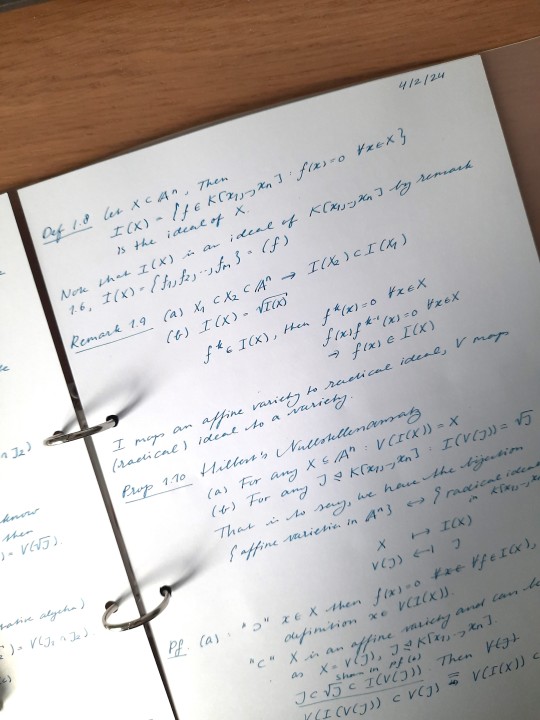 4/2/24
Def 1.8 Let X ⊂ Aⁿ, Then
I(X) = {f ∈ K[x₁,..,xₙ] : f(x)=0 ∀x∈X}
is the ideal of X.
Note that I(X) is an ideal of K[x₁,..,xₙ] by remark
1.6, I(X) = {f₁,f₂,..,fₘ} = (f)
Remark 1.9 (a) X₁ ⊂ X₂ ⊂ Aⁿ ⇒ I(X₂) ⊂ I(X₁)
(b) I(X) = √I(X)
fᵏ ∈ I(X), then fᵏ(x)=0 ∀x∈X
f(x)fᵏ⁻¹(x)=0 ∀x∈X
⇒ f(x) ∈ I(X)
I maps an affine variety to radical ideal, V maps
(radical) ideal to a variety.
Prop 1.10 Hilbert's Nullstellensatz
(a) For any X ⊆ Aⁿ : V(I(X)) = X
(b) For any J ⊴ K[x₁,..,xₙ] : I(V(J)) = √J
That is to say, we have the bijection
{affine varieties in Aⁿ} ↔ {radical ideal
in K[x₁,..,x
X ↦ I(X)
V(J) ↤ J
Pf. (a) : "⊃" x ∈ X then f(x)=0 ∀f ∈ I(X),
definition x ∈ V(I(X)).
"⊂" X is an affine variety and can be
as X = V(J), J ⊴ K[x₁,..,xₙ].
shown in pf (b)
J ⊂ √J ⊂ I(V(J)). Then
V(I(V(J)) ⊂ V(J) = V(I(X)) ⊂
∩ J₂)
know
then
) = V(√J).
algebra)
) = V(J₁ ∩ J₂).